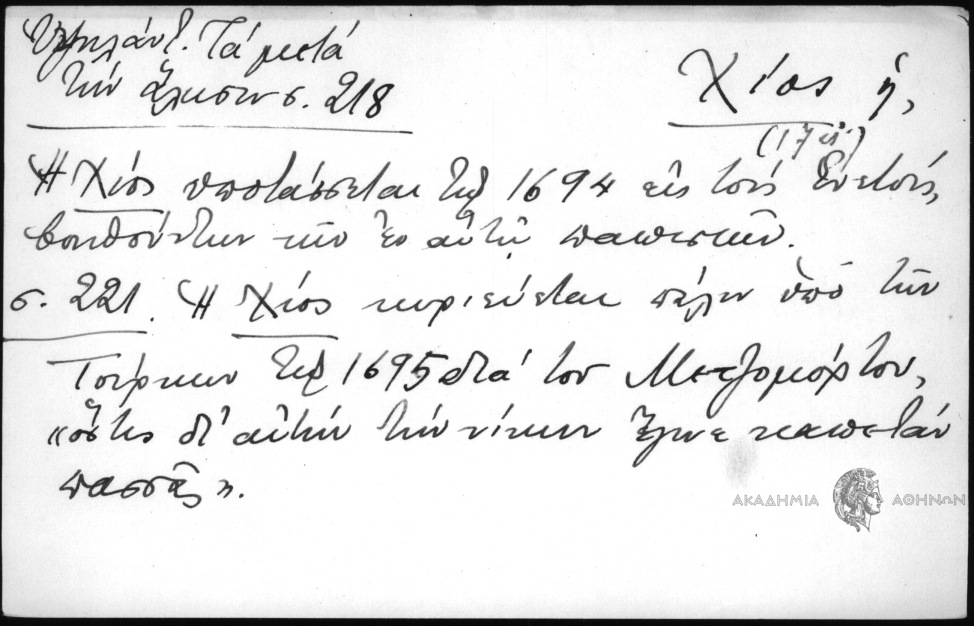 Ὑψηλάντ. Τά μετά
τήν ἅλωσιν σ. 218
Χίος ἡ,
(17 αἰ.)
Ἡ Χίος ὑποτάσσεται τῷ 1694 εἰς τούς Ἐνετούς,
βοηθούντων τῶν ἐν αὐτῇ παπιστῶν.
σ. 221. Ἡ Χίος κυριεύεται πάλιν ὑπό τῶν
Τούρκων τῷ 1695 διά τοῦ Μετζομόρτου,
«ὅστις δι' αὐτήν τήν νίκην ἔγινε καπετάν
πασσᾶς».
ΑΚΑΔΗΜΙΑ ΑΘΗΝΩΝ